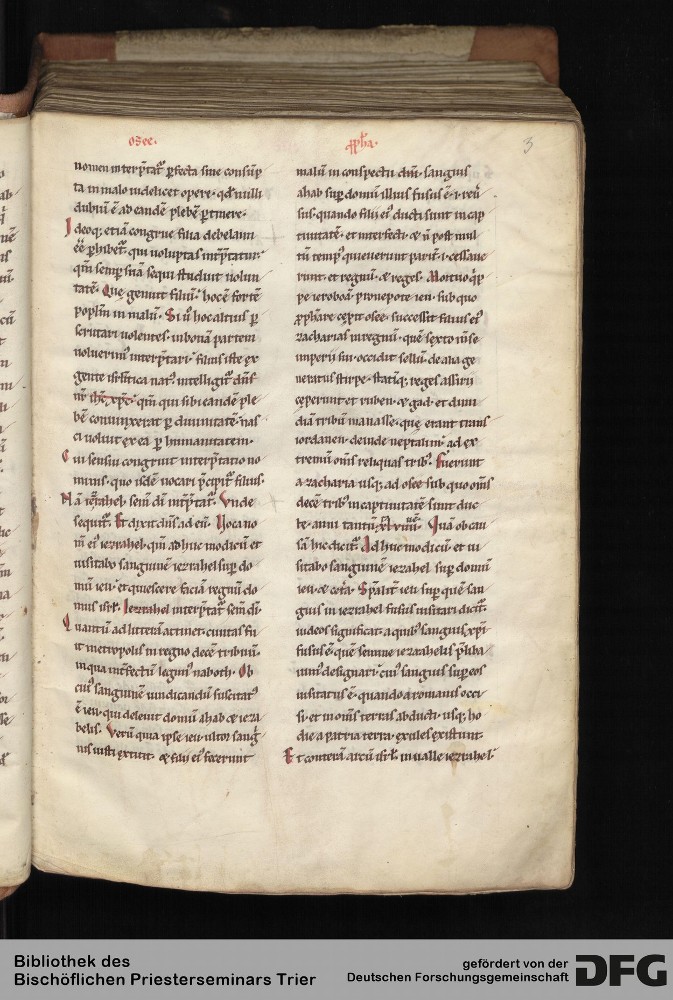 osee.
ꝓph̄a.
3
nomen interp̄tat᷑ ꝑfecta siue consūp
ta in malo uidelicet opere. qd̄ nulli
dubiū ē ad eandē plebē ꝑtinere.
Ideoq; etiā congrue filia debelaim
eē ꝑhibet᷑. qui uoluptas int̄p̄tatur.
qm̄ semꝑ suā sequi studuit uolun
tatē. Que genuit filiū. hoc ē fortē
populū in malū. Si ū hoc altius ꝑ
scrutari uolentes. in bonā partem
uoluerim᷒ interp̄tari. filius iste ex
gente isrl̄itica nat᷒ intelligit᷑ dn̄s
nr̄ ih̄c xp̄c. qm̄ qui sibi eandē ple
bē coniunxerat ꝑ diuinitatē. nas
ci uoluit ex ea ꝑ humanitatem.
Cui sensui congruit interp̄tatio no
minis. quo isdē uocari p̄cipit᷑ filius.
Nā iezrahel semē dī int̄p̄tat᷑. Vnde
sequit᷑. Et dixit dn̄s ad eū. Uoca no
m̄ ei᷒ iezrahel. qm̄ adhuc modicū et
uisitabo sanguinē iezrahel sup̄ do
mū ieu. et quiescere faciā regnū do
mus isrl̄. Iezrahel interp̄tat᷑ semē dī.
Quantū ad litterā actinet. ciuitas fu
it metropolis in regno decē tribuū.
in qua int̄fectū legim᷒ naboth. Ob
cui᷒ sanguinē uindicandū suscitat᷒
ē ieu. qui deleuit domū ahab & ieza
belis. Verū quia ipse ieu ultor sangī
nis iusti extitit. & filii ei᷒ fecerunt
malū in conspectu dn̄i. sanguis
ahab sup̄ domū illius fusus ē. i. reū
sus. quando filii ei᷒ ducti sunt in cap
tiuitatē. et interfecti. & ū post mul
tū temp᷒ quieuerunt parit᷑. i. cessaue
runt. et regnū. & reges. Mortuo q̄pp
pe ieroboā pronepote ieu. sub quo
ꝓph̄are cepit osee. successit filius ei᷒
zacharias in regnū. quē sexto m̄se
imperii sui occidit sellū. de alia ge
neratus stirpe. statīq; reges assirii
ceperunt et ruben. & gad. et dimi
diā tribū manasse. que erant trans
iordanen. deinde neptalim. ad ex
tremū om̄s reliquas trib᷒. Fuerunt
a zacharia usq; ad osee sub quo om̄s
decē trib᷒ in captiuitatē sunt duc
te. anni tantū xlviiii. Quā ob cau
sā hic dicit᷑. Adhuc modicū. et ui
sitabo sanguinē iezrahel sup̄ domū
ieu. & cet̄a. Sp̄alit᷑ ieu sup̄ quē san
guis in iezrahel fusus uisitari dicit᷑.
iudeos significat. a quib᷒ sanguis xp̄i
fusus ē. quē semine iezrahelis p̄lib᷒a
uim᷒ designari. cui᷒ sanguis sup̄ eos
uisitatus ē. quando a romanis occi
si. et in om̄s terras abducti. usq; ho
die a patria terra. exules existunt.
Et conterā arcū isrl̄. in ualle iezrahel.
Bibliothek des
Bischöflichen Priesterseminars Trier
gefördert von der
Deutschen Forschungsgemeinschaft
DFG